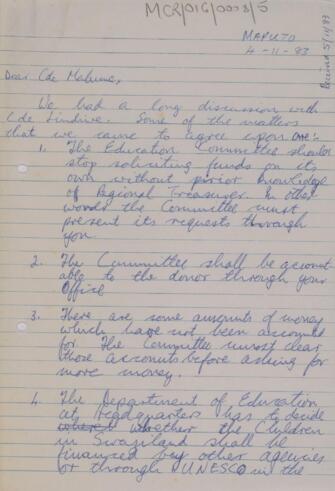 MCR/016/0003/5
MAPUTO
4-11-83
Received 5/11/83
Dear Cde Mabuse,
We had a long discussion with
Cde Lindiwe. Some of the matters
that we came to agree upon are:-
1. The Education Committee should
stop soliciting funds on its
own without prior knowledge
of Regional Treasurer. In other
words the Committee must
present its requests through
you.
2. The Committee shall be account-
able to the donor through your
Office
3. There are some amounts of money
which have not been accounted
for. The Committee must clear
those accounts before asking for
more money.
4. The Department of Education
at Headquarters has to decide
whether the Children
in Swaziland shall be
financed by other agencies
or through UNESCO in the